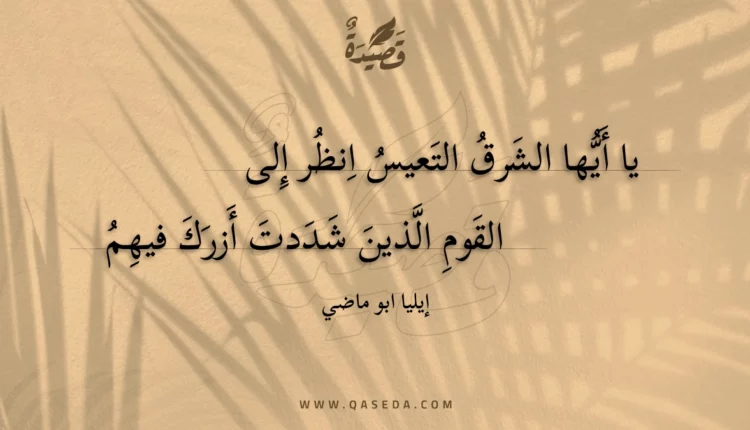 قَصِيْدَةٌ
يا أَيُّها الشَرقُ التَعيسُ اِنظُر إِلى
القَومِ الَّذينَ شَدَدتَ أَزرَكَ فيهِمُ
إيليا ابو ماضي
WWW.QASEDA.COM